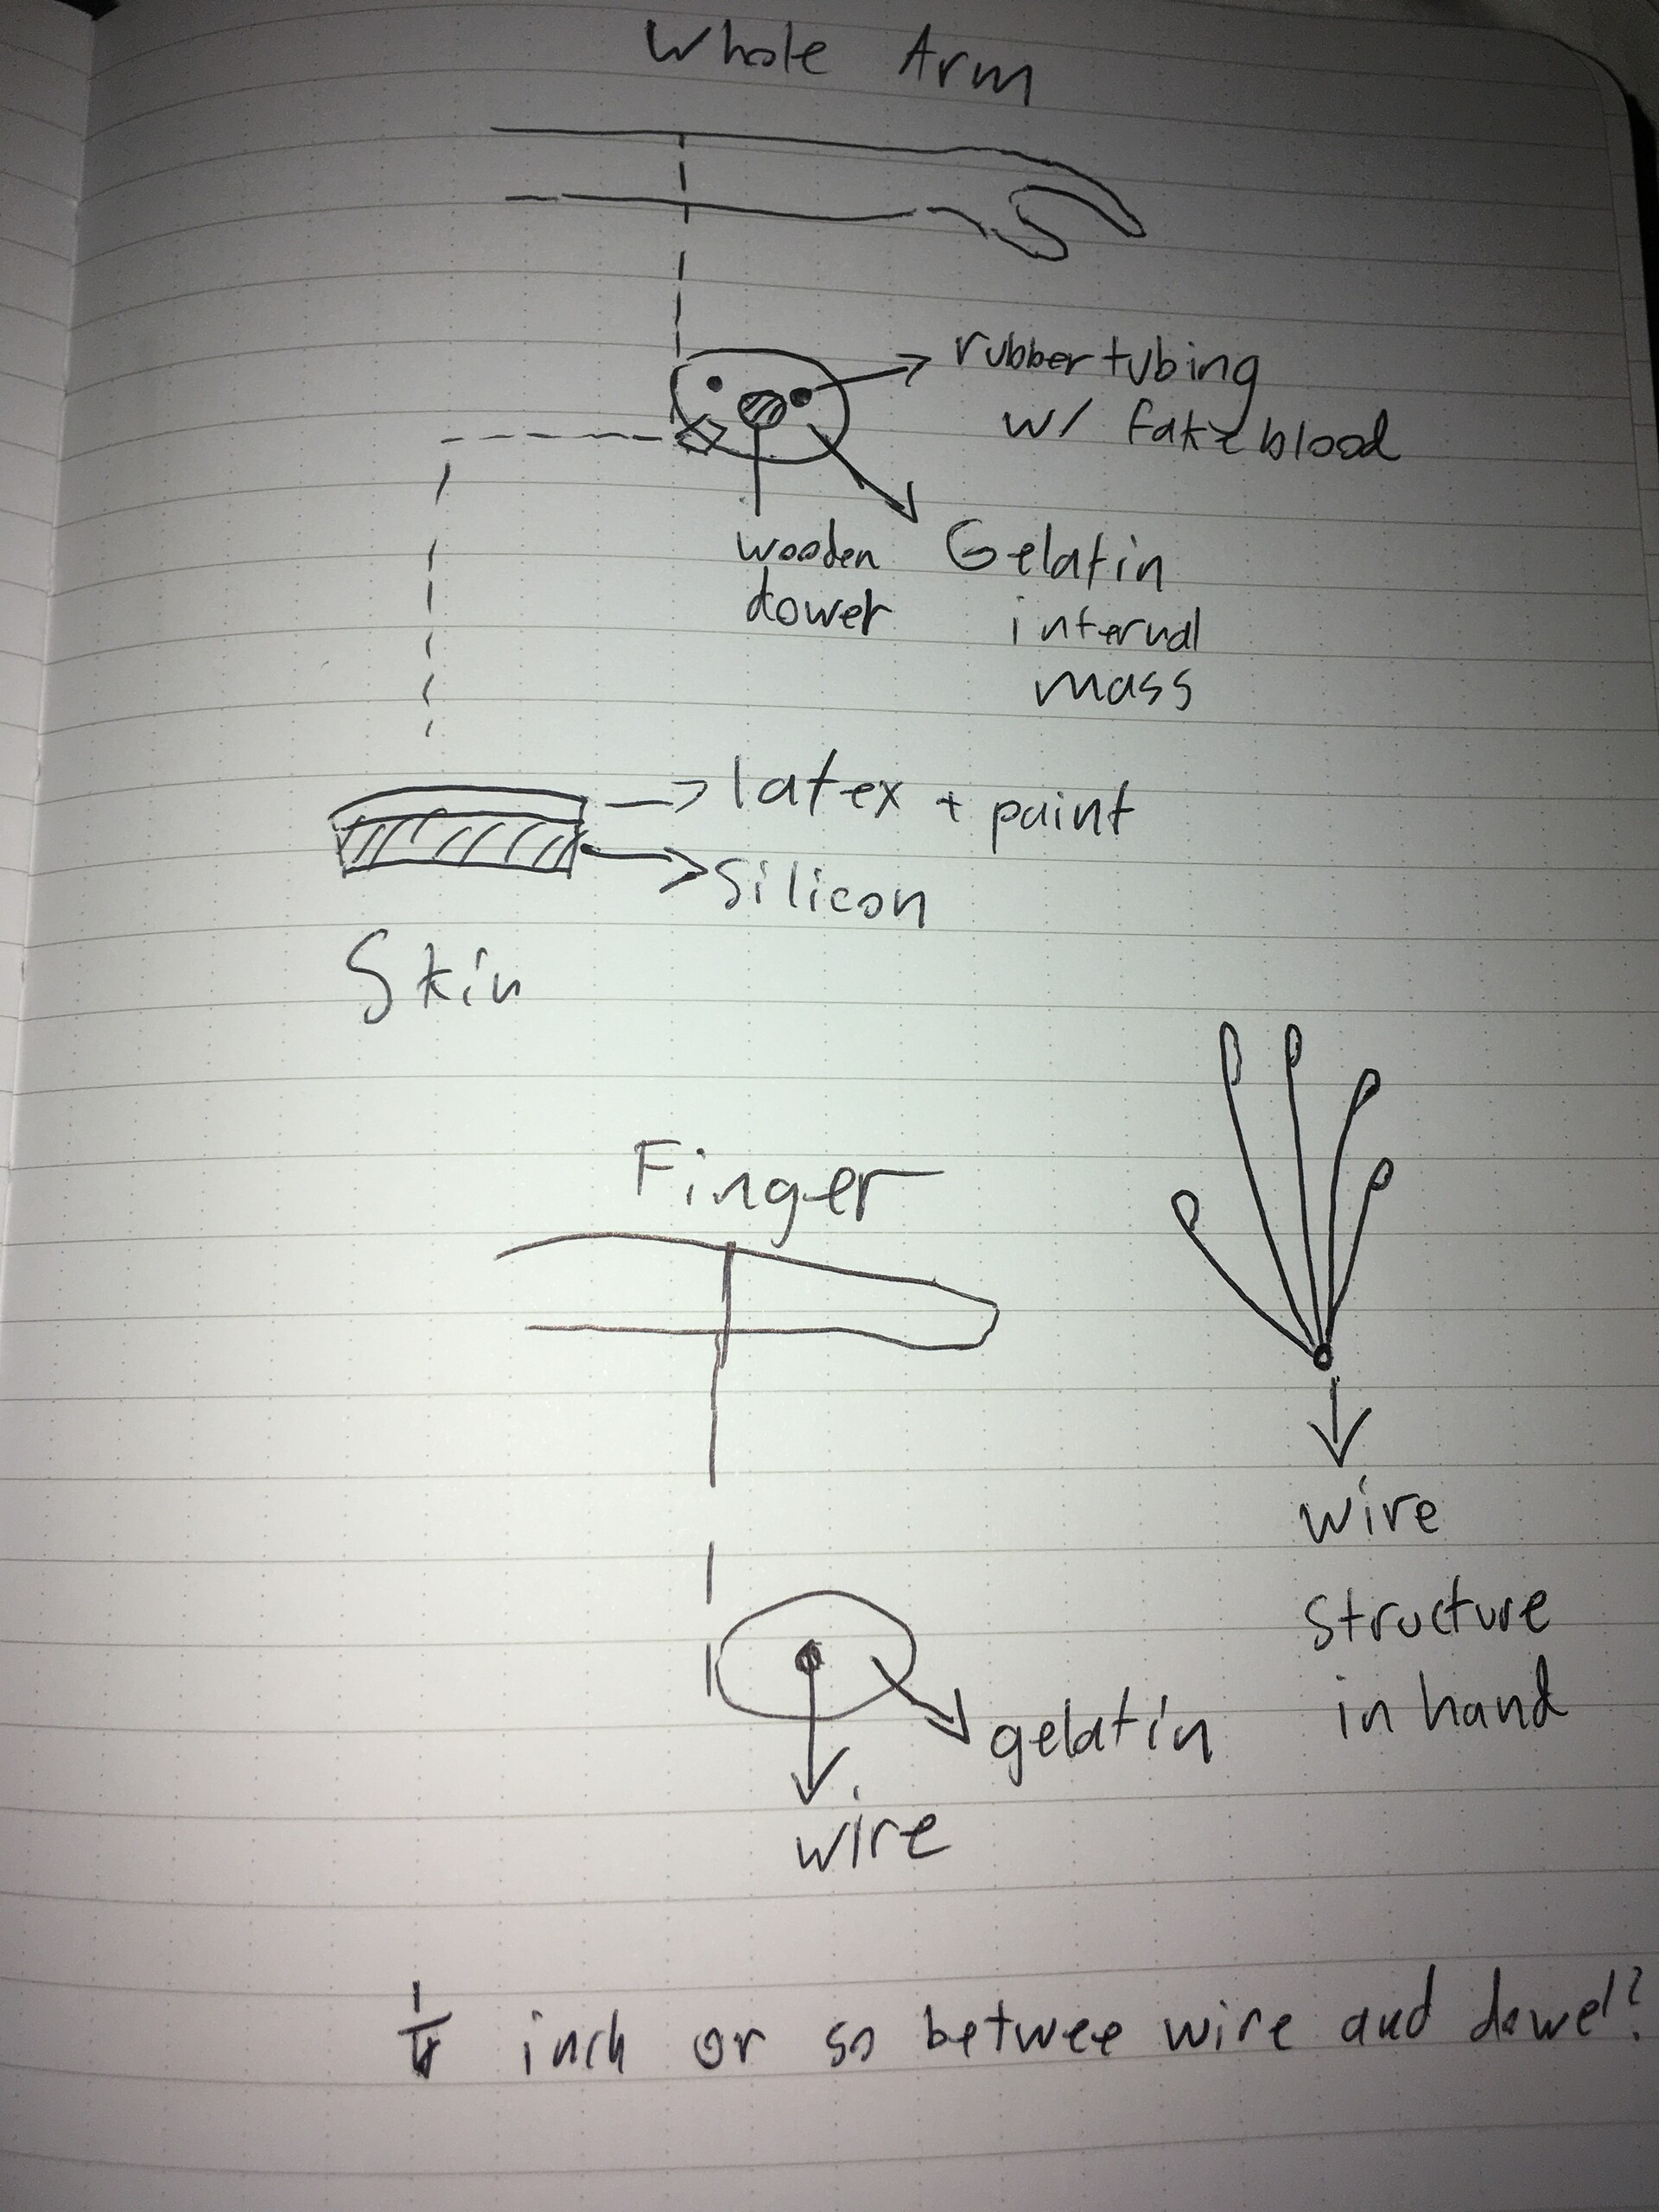 Whole Arm
rubber tubing
w/ fake blood
wooden
dower
Gelatin
internal
mass
latex + paint
Silicon
Skin
Finger
wire
structure
in hand
gelatin
wire
1/4 inch or so betwee wire and dowel?